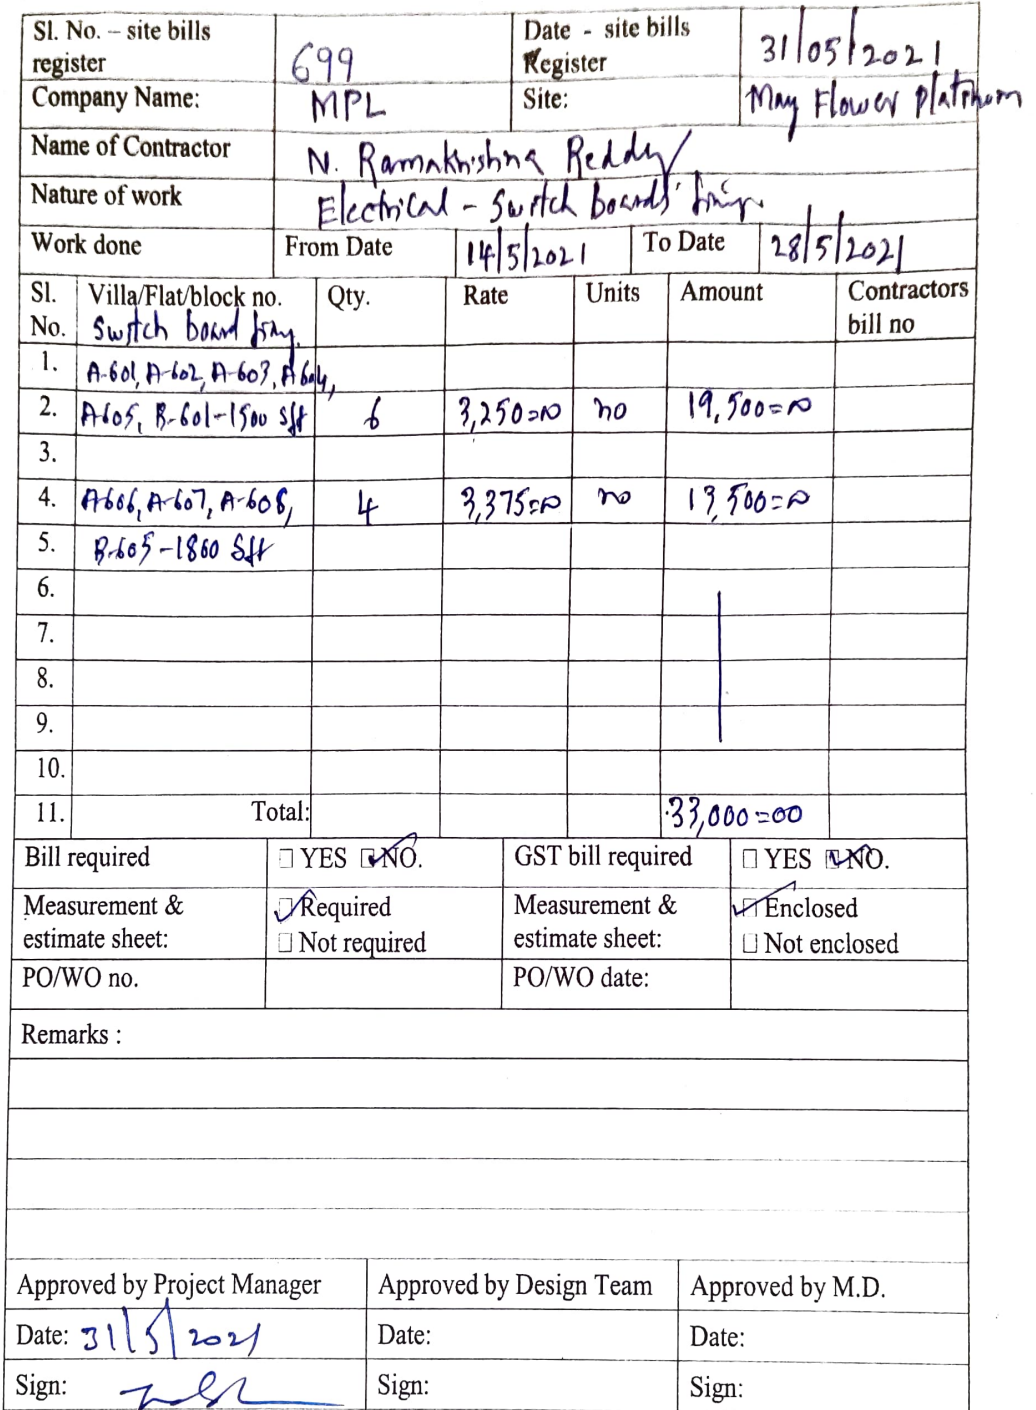 Sl. No. – site bills register 699 Date - site bills Register 31/05/2021
Company Name: MPL Site: May Flower Platinum
Name of Contractor N. Ramakrishna Reddy
Nature of work Electrical - Switch boards'
Work done From Date 14/5/2021 To Date 28/5/2021
Sl. No. Villa/Flat/block no. Qty. Rate Units Amount Contractors bill no
Switch board
1. A-601, A-602, A-603, A604,
2. A605, B-601-1500 Sft 6 3,250=00 no 19,500=00
3.
4. A606, A-607, A-608, 4 3,375=00 no 13,500=00
5. B-605-1860 Sft
6.
7.
8.
9.
10.
11. Total: 33,000=00
Bill required YES NO. GST bill required YES NO.
Measurement & estimate sheet: Required Not required Measurement & estimate sheet: Enclosed Not enclosed
PO/WO no. PO/WO date:
Remarks :
Approved by Project Manager Approved by Design Team Approved by M.D.
Date: 31/5/2021 Date: Date:
Sign: Sign: Sign: